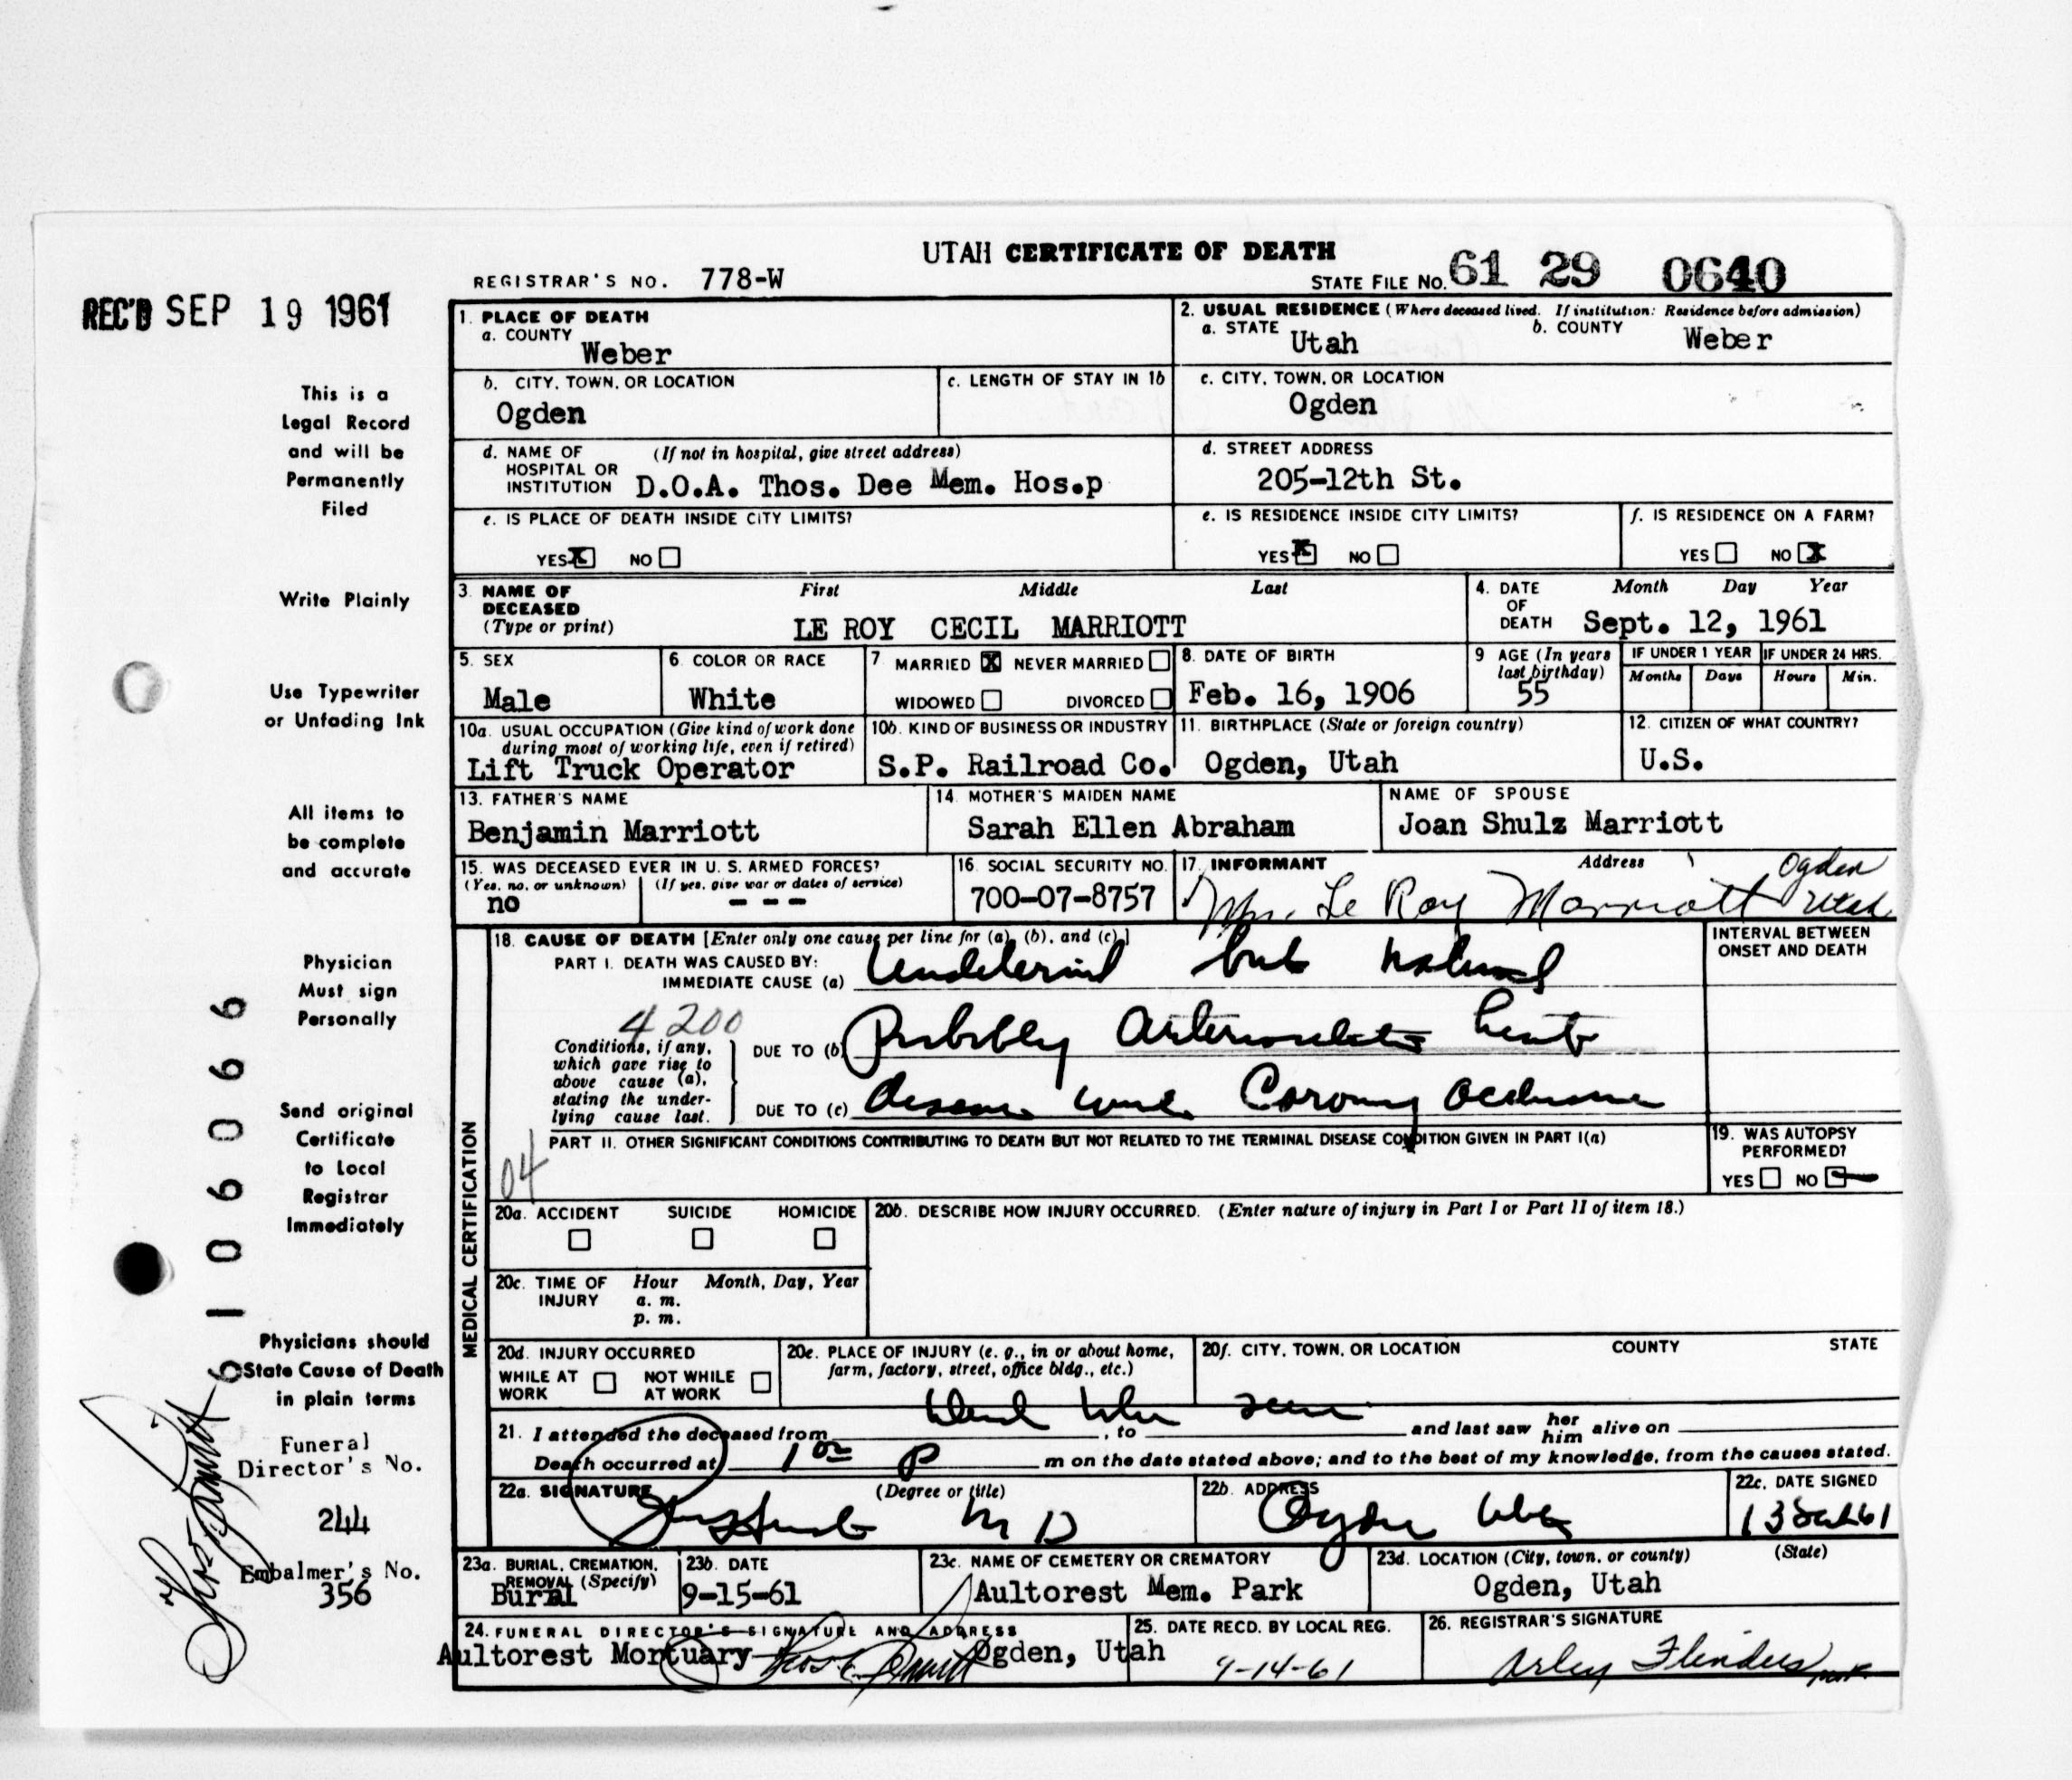 UTAH CERTIFICATE OF DEATH
REGISTRAR'S NO. 778-W
STATE FILE NO. 61 29 0640
REC'D SEP 19 1961
1. PLACE OF DEATH
a. COUNTY
Weber
2. USUAL RESIDENCE (Where deceased lived. If institution: Residence before admission)
a. STATE Utah b. COUNTY Weber
b. CITY, TOWN, OR LOCATION
Ogden
c. LENGTH OF STAY IN 1b
c. CITY, TOWN, OR LOCATION
Ogden
d. NAME OF HOSPITAL OR INSTITUTION (If not in hospital, give street address)
D.O.A. Thos. Dee Mem. Hos.p
d. STREET ADDRESS
205-12th St.
e. IS PLACE OF DEATH INSIDE CITY LIMITS?
YES X NO
e. IS RESIDENCE INSIDE CITY LIMITS?
YES X NO
f. IS RESIDENCE ON A FARM?
YES NO X
3. NAME OF DECEASED (Type or print)
First Middle Last
LE ROY CECIL MARRIOTT
4. DATE OF DEATH Month Day Year
Sept. 12, 1961
5. SEX
Male
6. COLOR OR RACE
White
7 MARRIED X NEVER MARRIED
WIDOWED DIVORCED
8. DATE OF BIRTH
Feb. 16, 1906
9 AGE (In years last birthday)
55
IF UNDER 1 YEAR
Months Days
IF UNDER 24 HRS.
Hours Min.
10a. USUAL OCCUPATION (Give kind of work done during most of working life, even if retired)
Lift Truck Operator
10b. KIND OF BUSINESS OR INDUSTRY
S.P. Railroad Co.
11. BIRTHPLACE (State or foreign country)
Ogden, Utah
12. CITIZEN OF WHAT COUNTRY?
U.S.
13. FATHER'S NAME
Benjamin Marriott
14. MOTHER'S MAIDEN NAME
Sarah Ellen Abraham
NAME OF SPOUSE
Joan Shulz Marriott
15. WAS DECEASED EVER IN U. S. ARMED FORCES?
(Yes, no, or unknown) (If yes, give war or dates of service)
no - - -
16. SOCIAL SECURITY NO.
700-07-8757
17. INFORMANT Address
Mrs. Le Roy Marriott Ogden Utah
MEDICAL CERTIFICATION
18. CAUSE OF DEATH [Enter only one cause per line for (a), (b), and (c).]
PART I. DEATH WAS CAUSED BY:
IMMEDIATE CAUSE (a) but natural
4200
Conditions, if any, which gave rise to above cause (a), stating the underlying cause last.
DUE TO (b) Probably heart
DUE TO (c) disease Coronary
INTERVAL BETWEEN ONSET AND DEATH
04
PART II. OTHER SIGNIFICANT CONDITIONS CONTRIBUTING TO DEATH BUT NOT RELATED TO THE TERMINAL DISEASE CONDITION GIVEN IN PART I(a)
19. WAS AUTOPSY PERFORMED?
YES NO
20a. ACCIDENT SUICIDE HOMICIDE
20b. DESCRIBE HOW INJURY OCCURRED. (Enter nature of injury in Part I or Part II of item 18.)
20c. TIME OF INJURY Hour Month, Day, Year
a. m.
p. m.
20d. INJURY OCCURRED
WHILE AT WORK NOT WHILE AT WORK
20e. PLACE OF INJURY (e. g., in or about home, farm, factory, street, office bldg., etc.)
20f. CITY, TOWN, OR LOCATION COUNTY STATE
Dead when seen
21. I attended the deceased from , to and last saw her him alive on
Death occurred at 1 00 P m on the date stated above; and to the best of my knowledge, from the causes stated.
22a. SIGNATURE (Degree or title)
M D
22b. ADDRESS
Ogden Utah
22c. DATE SIGNED
13 Sept 61
23a. BURIAL, CREMATION, REMOVAL (Specify)
Burial
23b. DATE
9-15-61
23c. NAME OF CEMETERY OR CREMATORY
Aultorest Mem. Park
23d. LOCATION (City, town, or county) (State)
Ogden, Utah
24. FUNERAL DIRECTOR'S SIGNATURE AND ADDRESS
Aultorest Mortuary Ogden, Utah
25. DATE RECD. BY LOCAL REG.
9-14-61
26. REGISTRAR'S SIGNATURE
Arley Flinders
This is a
Legal Record
and will be
Permanently
Filed
Write Plainly
Use Typewriter
or Unfading Ink
All items to
be complete
and accurate
Physician
Must sign
Personally
Send original
Certificate
to Local
Registrar
Immediately
Physicians should
State Cause of Death
in plain terms
Funeral
Director's No.
244
Embalmer's No.
356
0106066